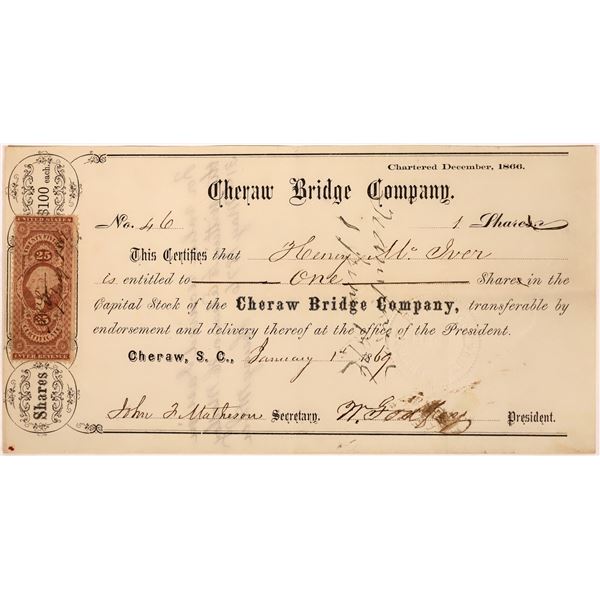 Chartered December, 1866.
Cheraw Bridge Company.
No. 46 1 Shares
This Certifies that Henry McIver
is entitled to One Shares in the
Capital Stock of the Cheraw Bridge Company, transferable by
endorsement and delivery thereof at the office of the President.
Cheraw, S. C., January 1st 1869
John F Matheson Secretary. W. Godfrey President.
Shares $100 each.
UNITED STATES
25
25
CERTIFICATE
INTER. REVENUE